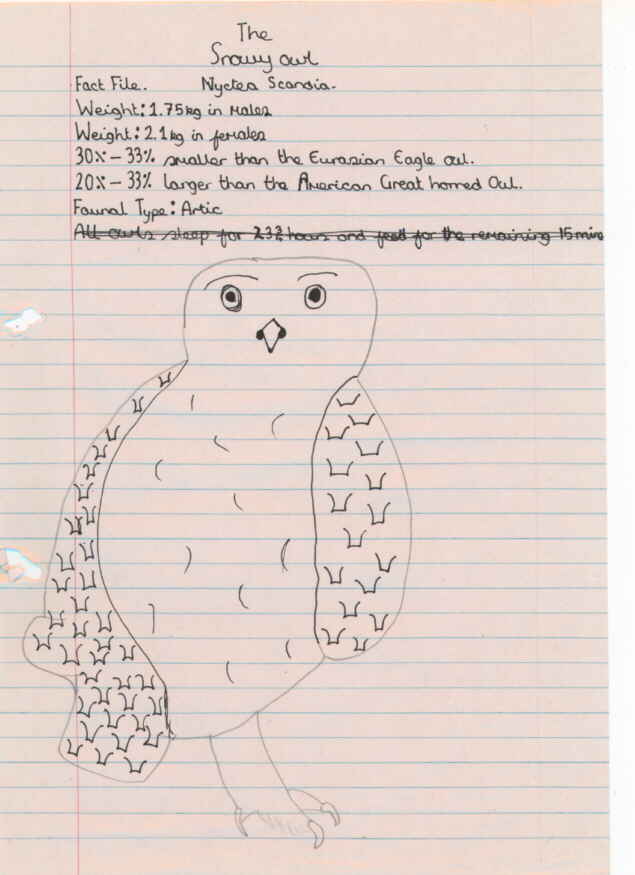 The
Snowy owl
Fact File. Nyctea Scandia.
Weight: 1.75kg in Males
Weight: 2.1kg in females
30% - 33% smaller than the Eurasian Eagle owl.
20% - 33% larger than the American Great horned Owl.
Faunal Type: Artic
All owls sleep for 23¾ hours and feed for the remaining 15 mins